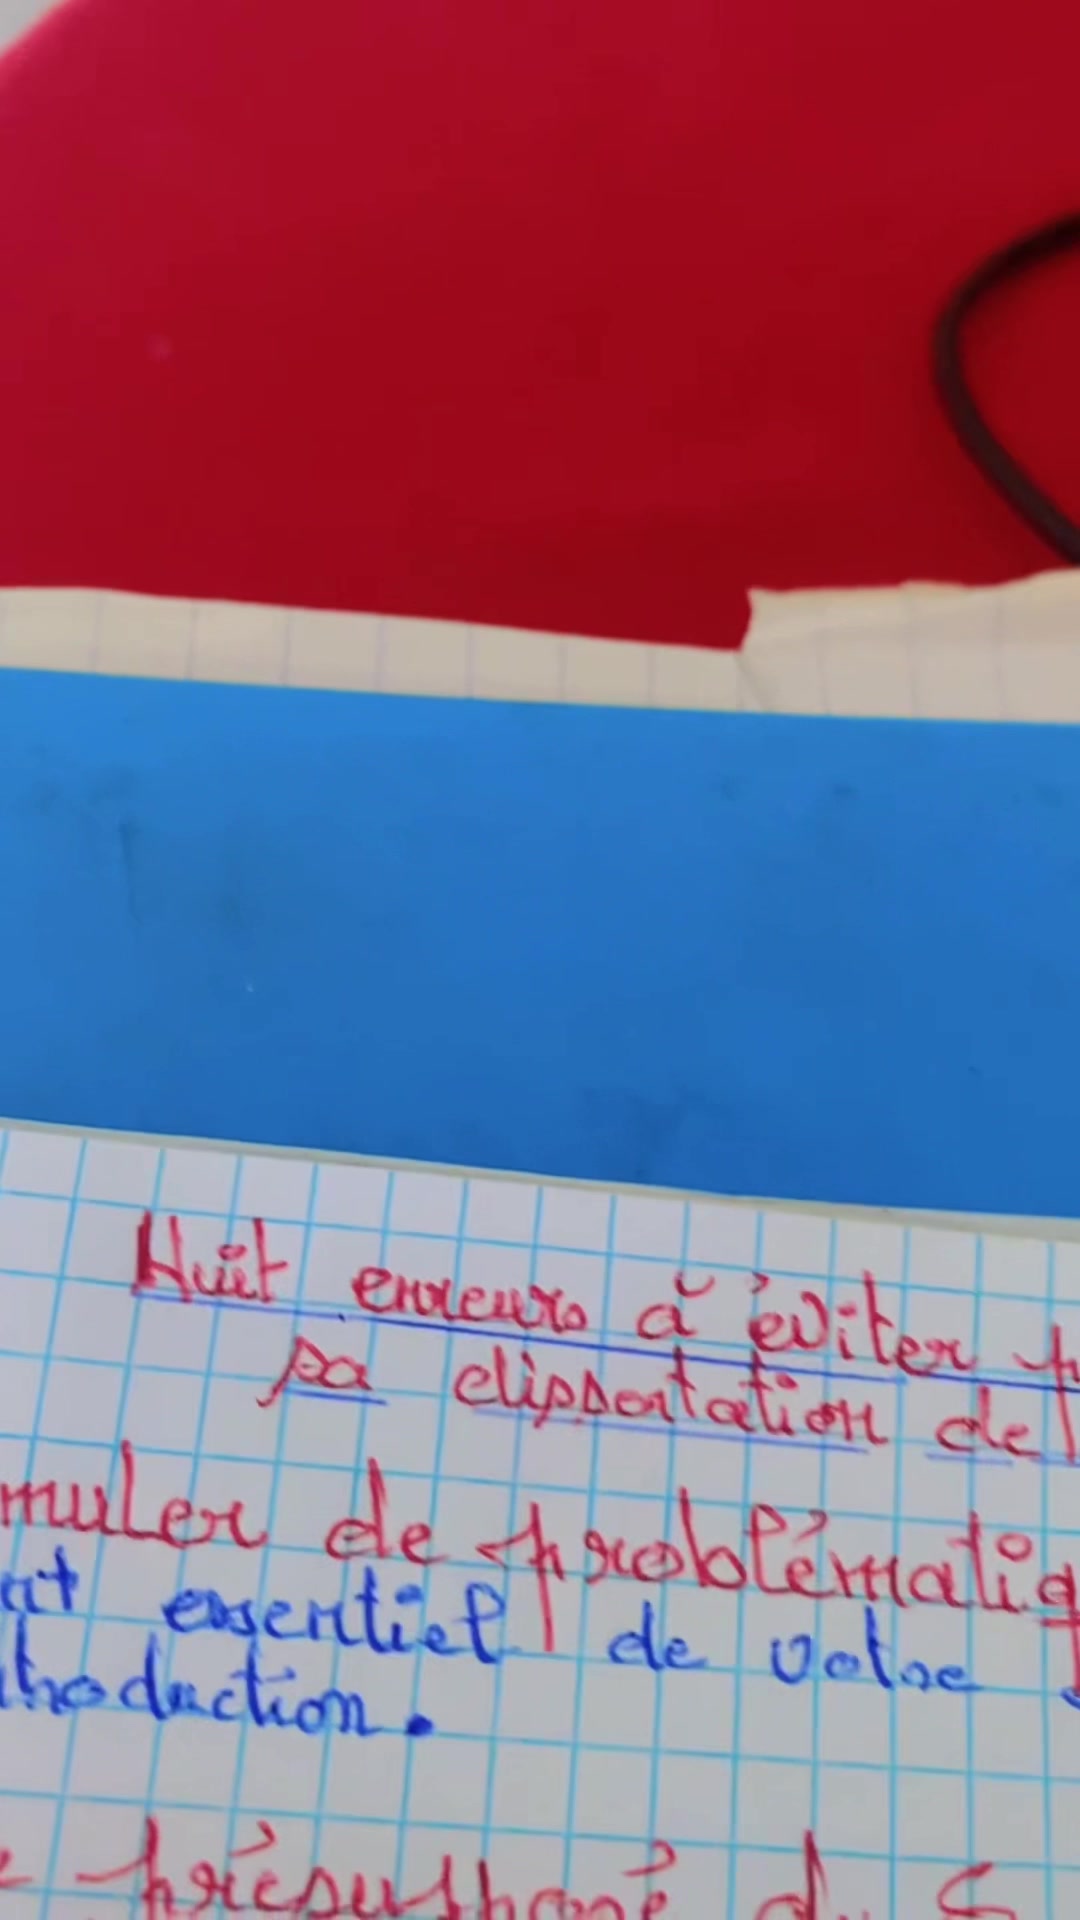 Huit erreurs à éviter
sa dissertation de
muler de problématiq
essentiel de votre
troduction.
présupposé du